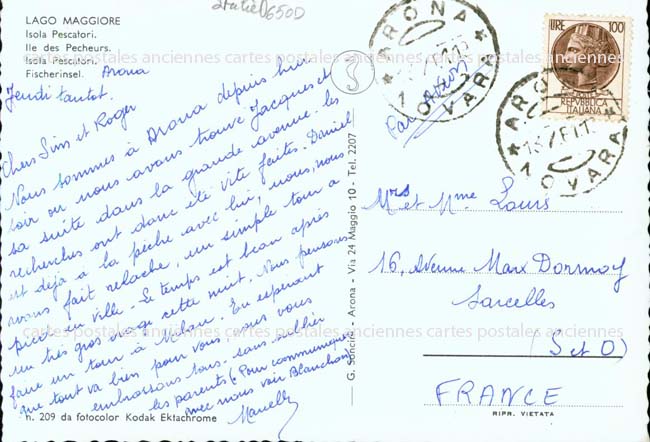 Italie 0650D
LAGO MAGGIORE
Isola Pescatori.
Ile des Pecheurs.
Isola Pescatori.
Fischerinsel.
Arona
Jeudi tantot.
Chers et Roger
Nous sommes à Arona depuis hier
soir ou nous avons trouvé Jacques et
sa suite dans la grande avenue. les
recherches ont donc été vite faites. Daniel
est déjà à la pêche avec lui, nous, nous
avons fait relache, un simple tour a
pied en ville. Le temps est beau après
un très gros orage cette nuit. Nous pensons
faire un tour à Milan. En espérant
que tout va bien pour vous, nous vous
embrassons tous. sans oublier
les parents (Pour communiquer
avec nous voir Blanchon)
n. 209 da fotocolor Kodak Ektachrome
G. Arona - Via 24 Maggio 10 - Tel. 2207
3
Par avion
ARONA
NOVARA
LIRE 100
REPVBBLICA
ITALIANA
ARONA
NOVARA
Mrs et Mme Louis
16, Avenue Marx Dormoy
Sarcelles
(S et O)
FRANCE
RIPR. VIETATA
cartes postales anciennes cartes postales anciennes cartes postales anciennes
cartes postales anciennes cartes postales anciennes cartes postales anciennes